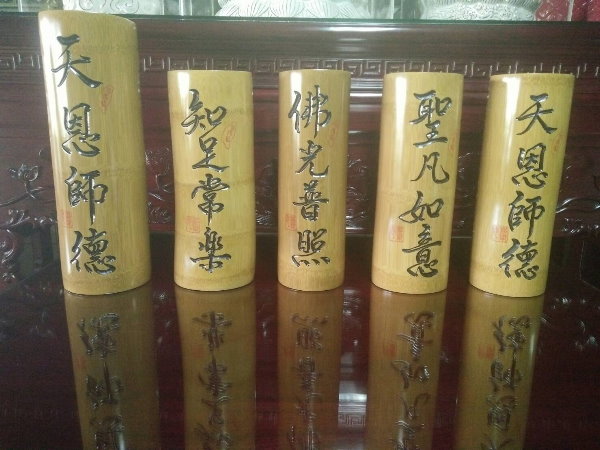 天恩師德
知足常樂
佛光普照
聖凡如意
天恩師德